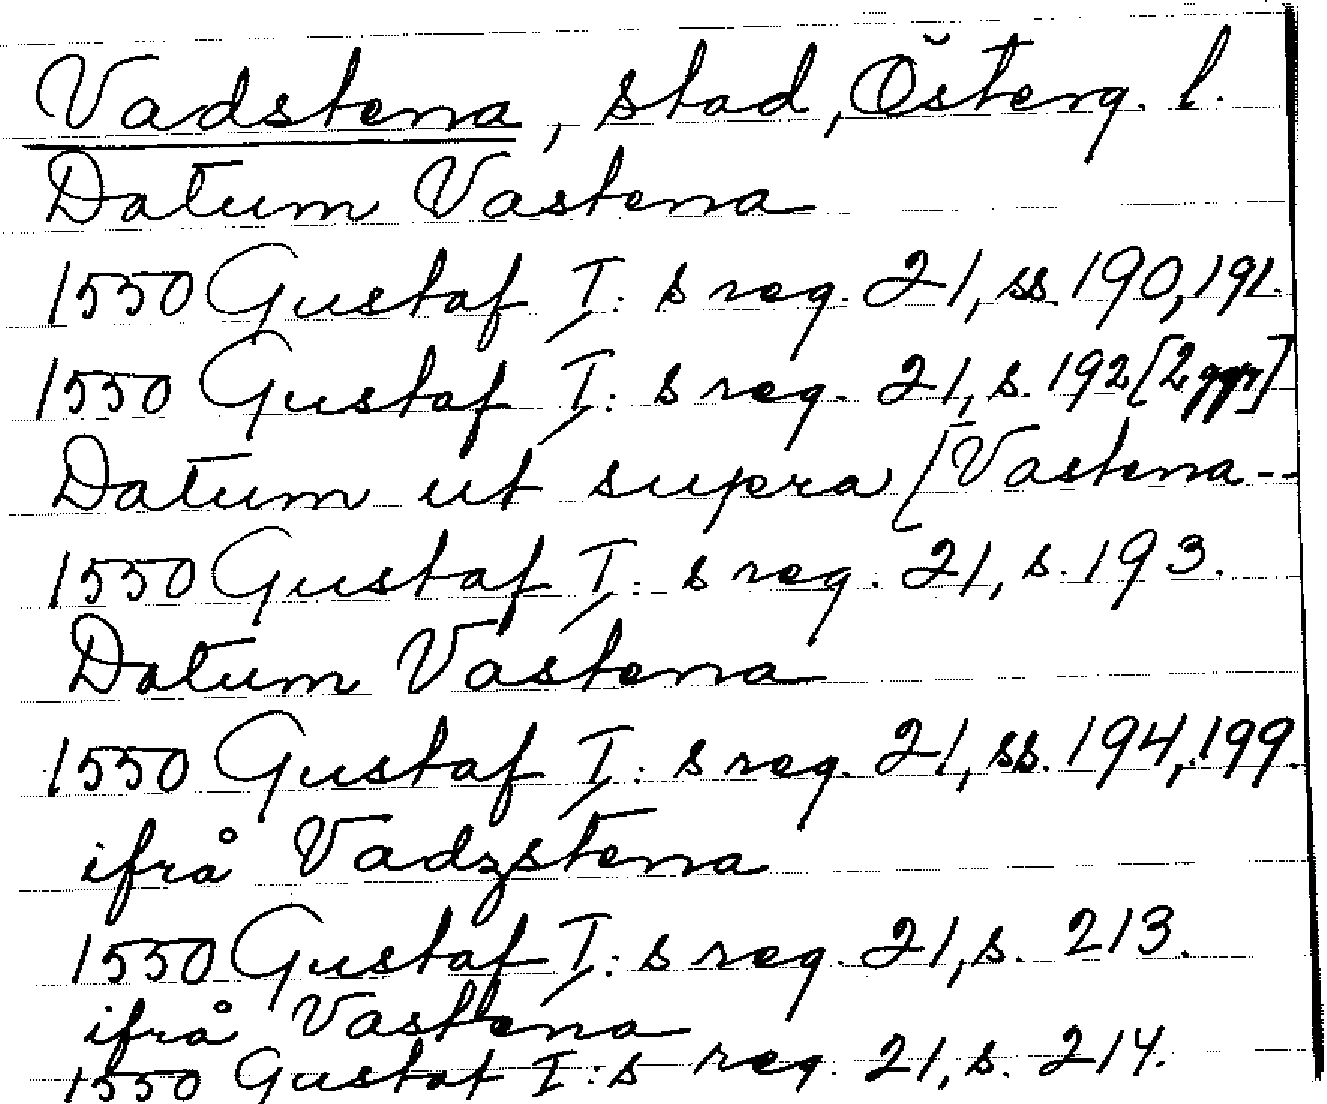 Vadstena, stad, Österg. l.
Datum Vastena
1550 Gustaf I:s reg. 21, ss. 190, 191.
1550 Gustaf I:s reg. 21, s. 192 [2 ggr]
Datum ut supra [Vastena --
1550 Gustaf I:s reg. 21, s. 193.
Datum Vastena
1550 Gustaf I:s reg. 21, ss. 194, 199.
ifrå Vadzstena
1550 Gustaf I:s reg. 21, s. 213.
ifrå Vasttena
1550 Gustaf I:s reg. 21, s. 214.